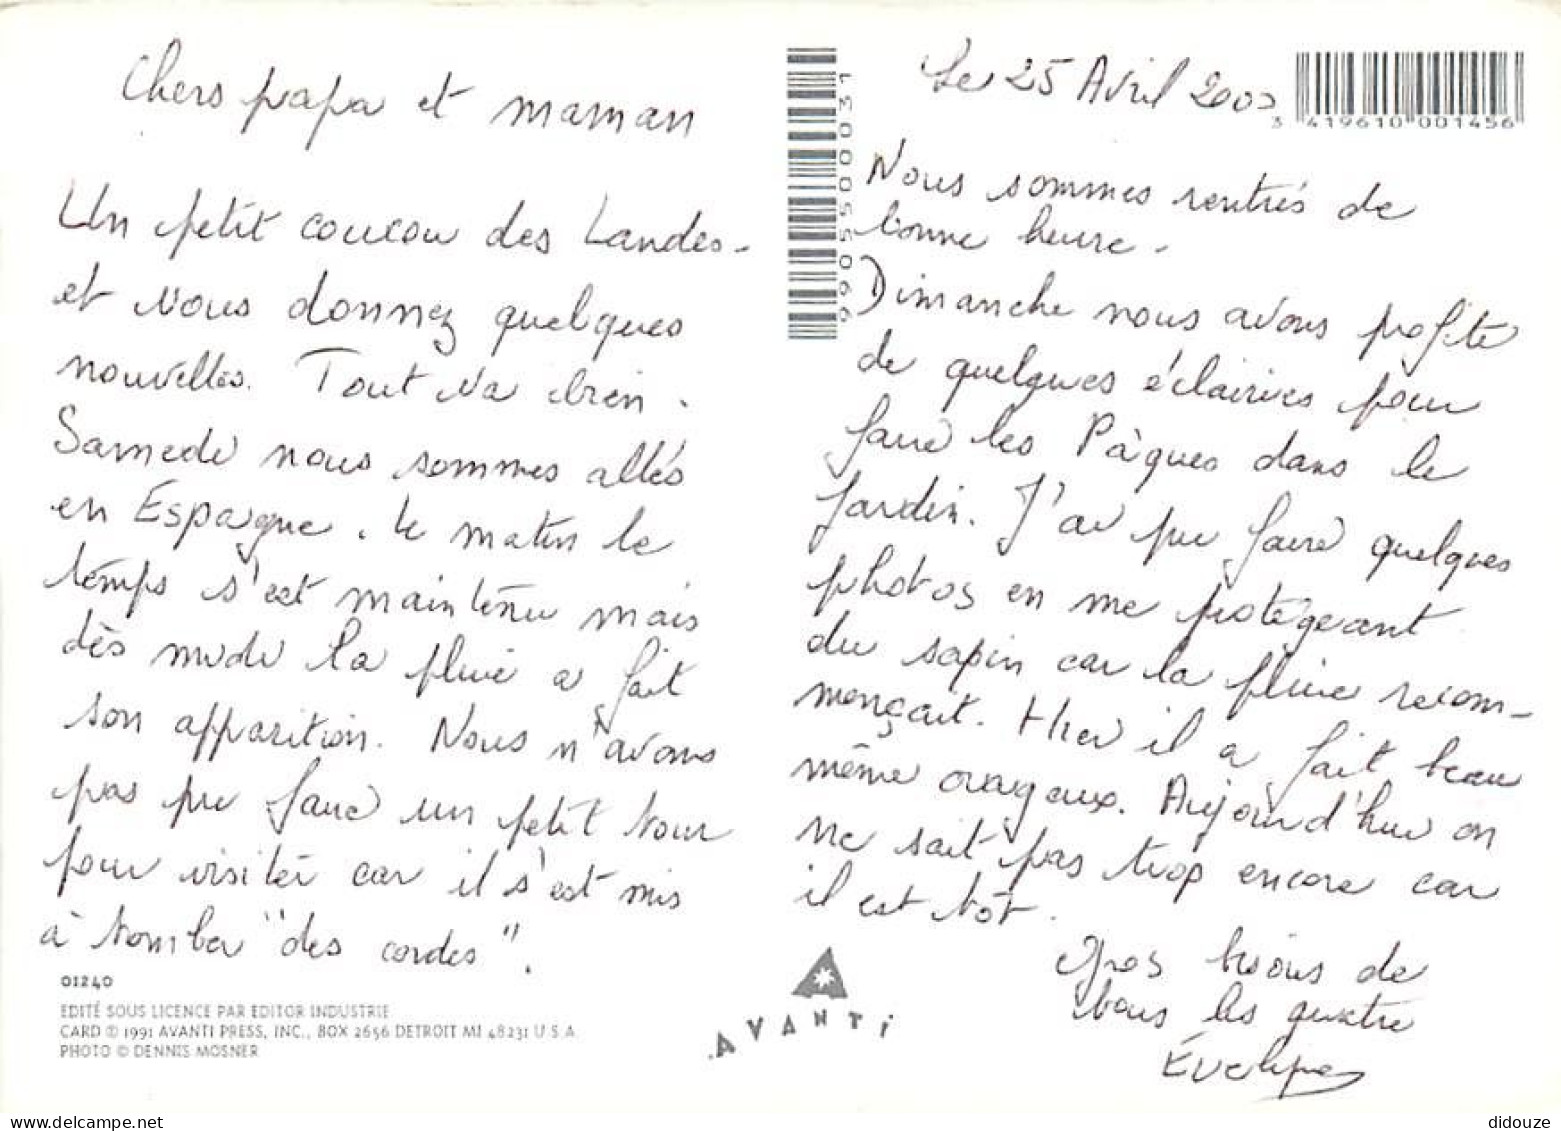 Chers papa et maman
Un petit coucou des Landes -
et vous donnez quelques
nouvelles. Tout va bien.
Samedi nous sommes allés
en Espagne. Le matin le
temps s'est maintenu mais
dès midi la pluie a fait
son apparition. Nous n'avons
pas pu faire un petit tour
pour visiter car il s'est mis
à tomber "des cordes".
01240
EDITÉ SOUS LICENCE PAR EDITOR INDUSTRIE
CARD © 1991 AVANTI PRESS, INC., BOX 2656 DETROIT MI 48231 U S.A.
PHOTO © DENNIS MOSNER
AVANTI
99055000031
Le 25 Avril 2000
3 419610 001456
Nous sommes rentrés de
bonne heure -
Dimanche nous avons profité
de quelques éclaircies pour
faire les Pâques dans le
jardin. J'ai pu faire quelques
photos en me protégeant
du sapin car la pluie recom-
mençait. Hier il a fait beau
même orageux. Aujourd'hui on
ne sait pas trop encore car
il est tôt.
Gros bisous de
tous les quatre
Évelyne
didouze